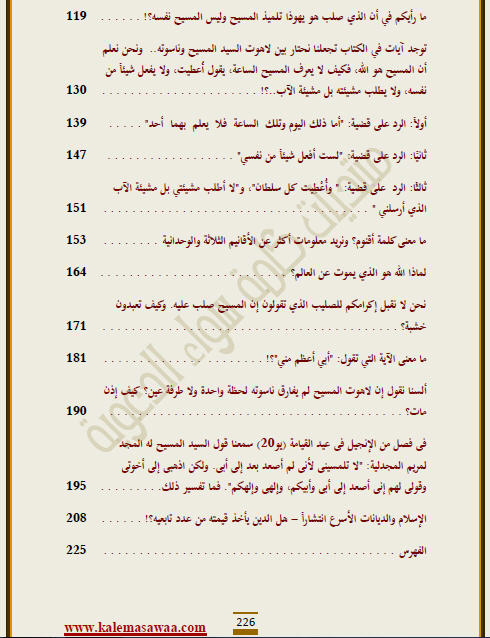 ما رأيكم في أن الذي صلب هو يهوذا تلميذ المسيح وليس المسيح نفسه؟! . . . . . . 119
توجد آيات في الكتاب تجعلنا نحتار بين لاهوت السيد المسيح وناسوته.. ونحن نعلم
أن المسيح هو الله، فكيف لا يعرف المسيح الساعة، يقول أعطيت، ولا يفعل شيئاً من
نفسه، ولا يطلب مشيئته بل مشيئة الآب..؟! . . . . . . . . . . . . . . . . . . . 130
أولاً: الرد على قضية: "أما ذلك اليوم وتلك الساعة فلا يعلم بهما أحد" . . . . . 139
ثانيًا: الرد على قضية: "لست أفعل شيئاً من نفسي" . . . . . . . . . . . . . . . 147
ثالثًا: الرد على قضية: " وأُعْطِيت كل سلطان"، و"لا أطلب مشيئتي بل مشيئة الآب
الذي أرسلني " . . . . . . . . . . . . . . . . . . . . . . . . . . . . . . . . . . . 151
ما معنى كلمة أقنوم؟ ونريد معلومات أكثر عن الأقانيم الثلاثة والوحدانية . . . . . 153
لماذا الله هو الذي يموت عن العالم؟ . . . . . . . . . . . . . . . . . . . . . . . 164
نحن لا نقبل إكرامكم للصليب الذي تقولون إن المسيح صلب عليه. وكيف تعبدون
خشبة؟ . . . . . . . . . . . . . . . . . . . . . . . . . . . . . . . . . . . . . . . 171
ما معنى الآية التي تقول: "أبي أعظم مني"؟! . . . . . . . . . . . . . . . . . . . 181
ألسنا نقول إن لاهوت المسيح لم يفارق ناسوته لحظة واحدة ولا طرفة عين؟ كيف إذن
مات؟ . . . . . . . . . . . . . . . . . . . . . . . . . . . . . . . . . . . . . . . . 190
فى فصل من الإنجيل فى عيد القيامة (يو20) سمعنا قول السيد المسيح له المجد
لمريم المجدلية: "لا تلمسينى لأنى لم أصعد بعد إلى أبى. ولكن اذهبى إلى أخوتى
وقولى لهم إنى أصعد إلى أبى وأبيكم، وإلهى وإلهكم". فما تفسير ذلك. . . . . . 195
الإسلام والديانات الأسرع انتشاراً – هل الدين يأخذ قيمته من عدد تابعيه؟! . . . . . . 208
الفهرس . . . . . . . . . . . . . . . . . . . . . . . . . . . . . . . . . . . . . . 225
منتديات كلمة سواء الدعوية
226
www.kalemasawaa.com